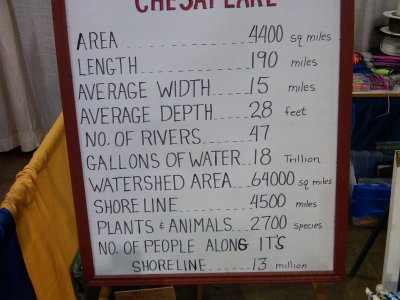 CHESAPEAKE
AREA ........... 4400 sq miles
LENGTH ........... 190 miles
AVERAGE WIDTH .... 15 miles
AVERAGE DEPTH .... 28 feet
NO. OF RIVERS .... 47
GALLONS OF WATER... 18 Trillion
WATERSHED AREA... 64000 sq miles
SHORE LINE ........ 4500 miles
PLANTS & ANIMALS.. 2700 species
NO. OF PEOPLE ALONG IT'S
SHORE LINE ...... 13 million